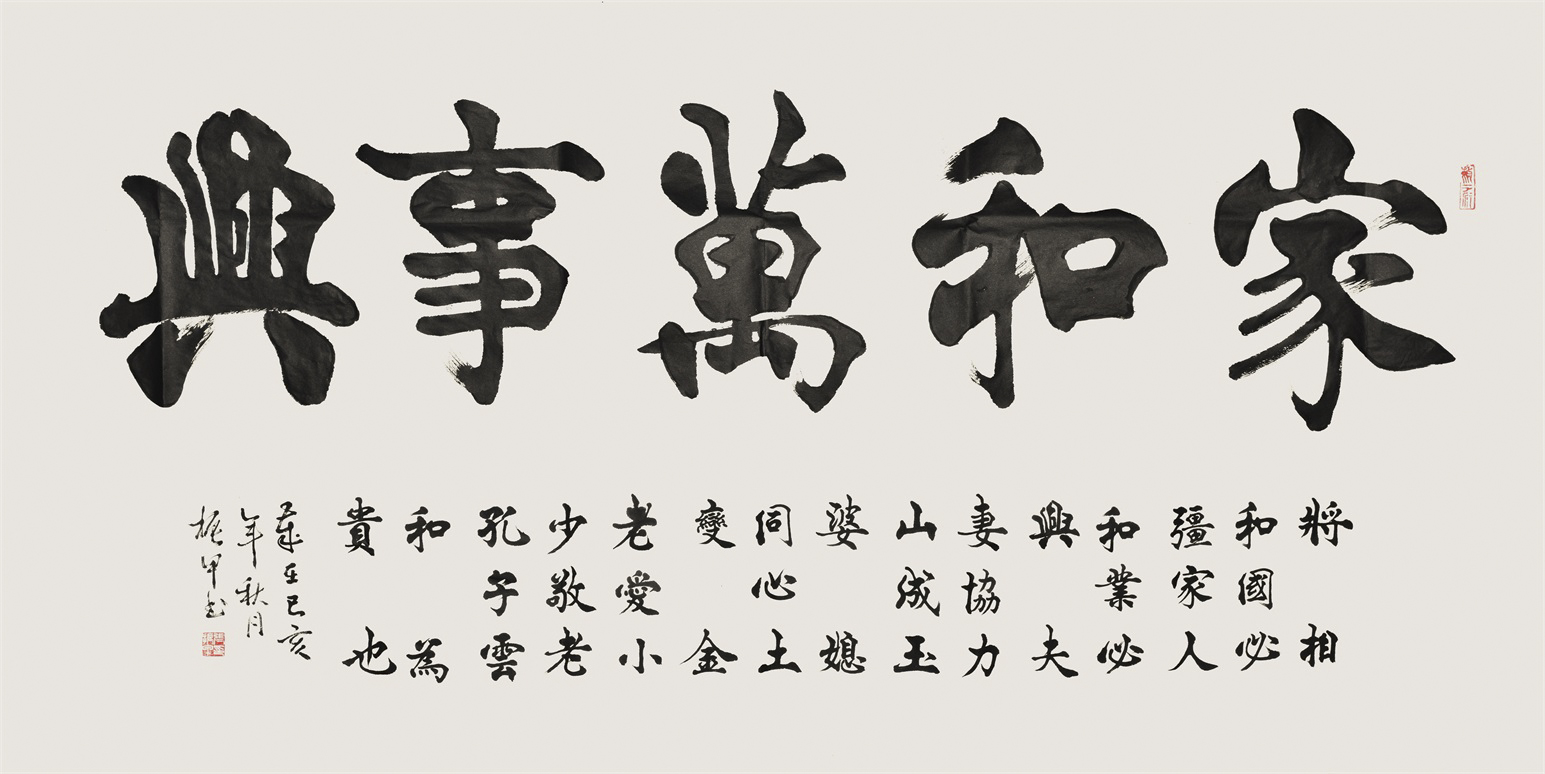 家和萬事興
將相
和國必
彊家人
和業必
興夫
妻協力
山成玉
婆媳
同心土
變金
老愛小
少敬老
孔子雲
和為
貴也
歲在己亥
年秋月
振甲書